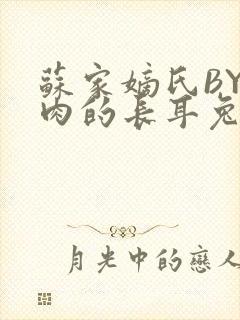 蘇家嫡氏BY
肉的長耳兔
月光中的戀人